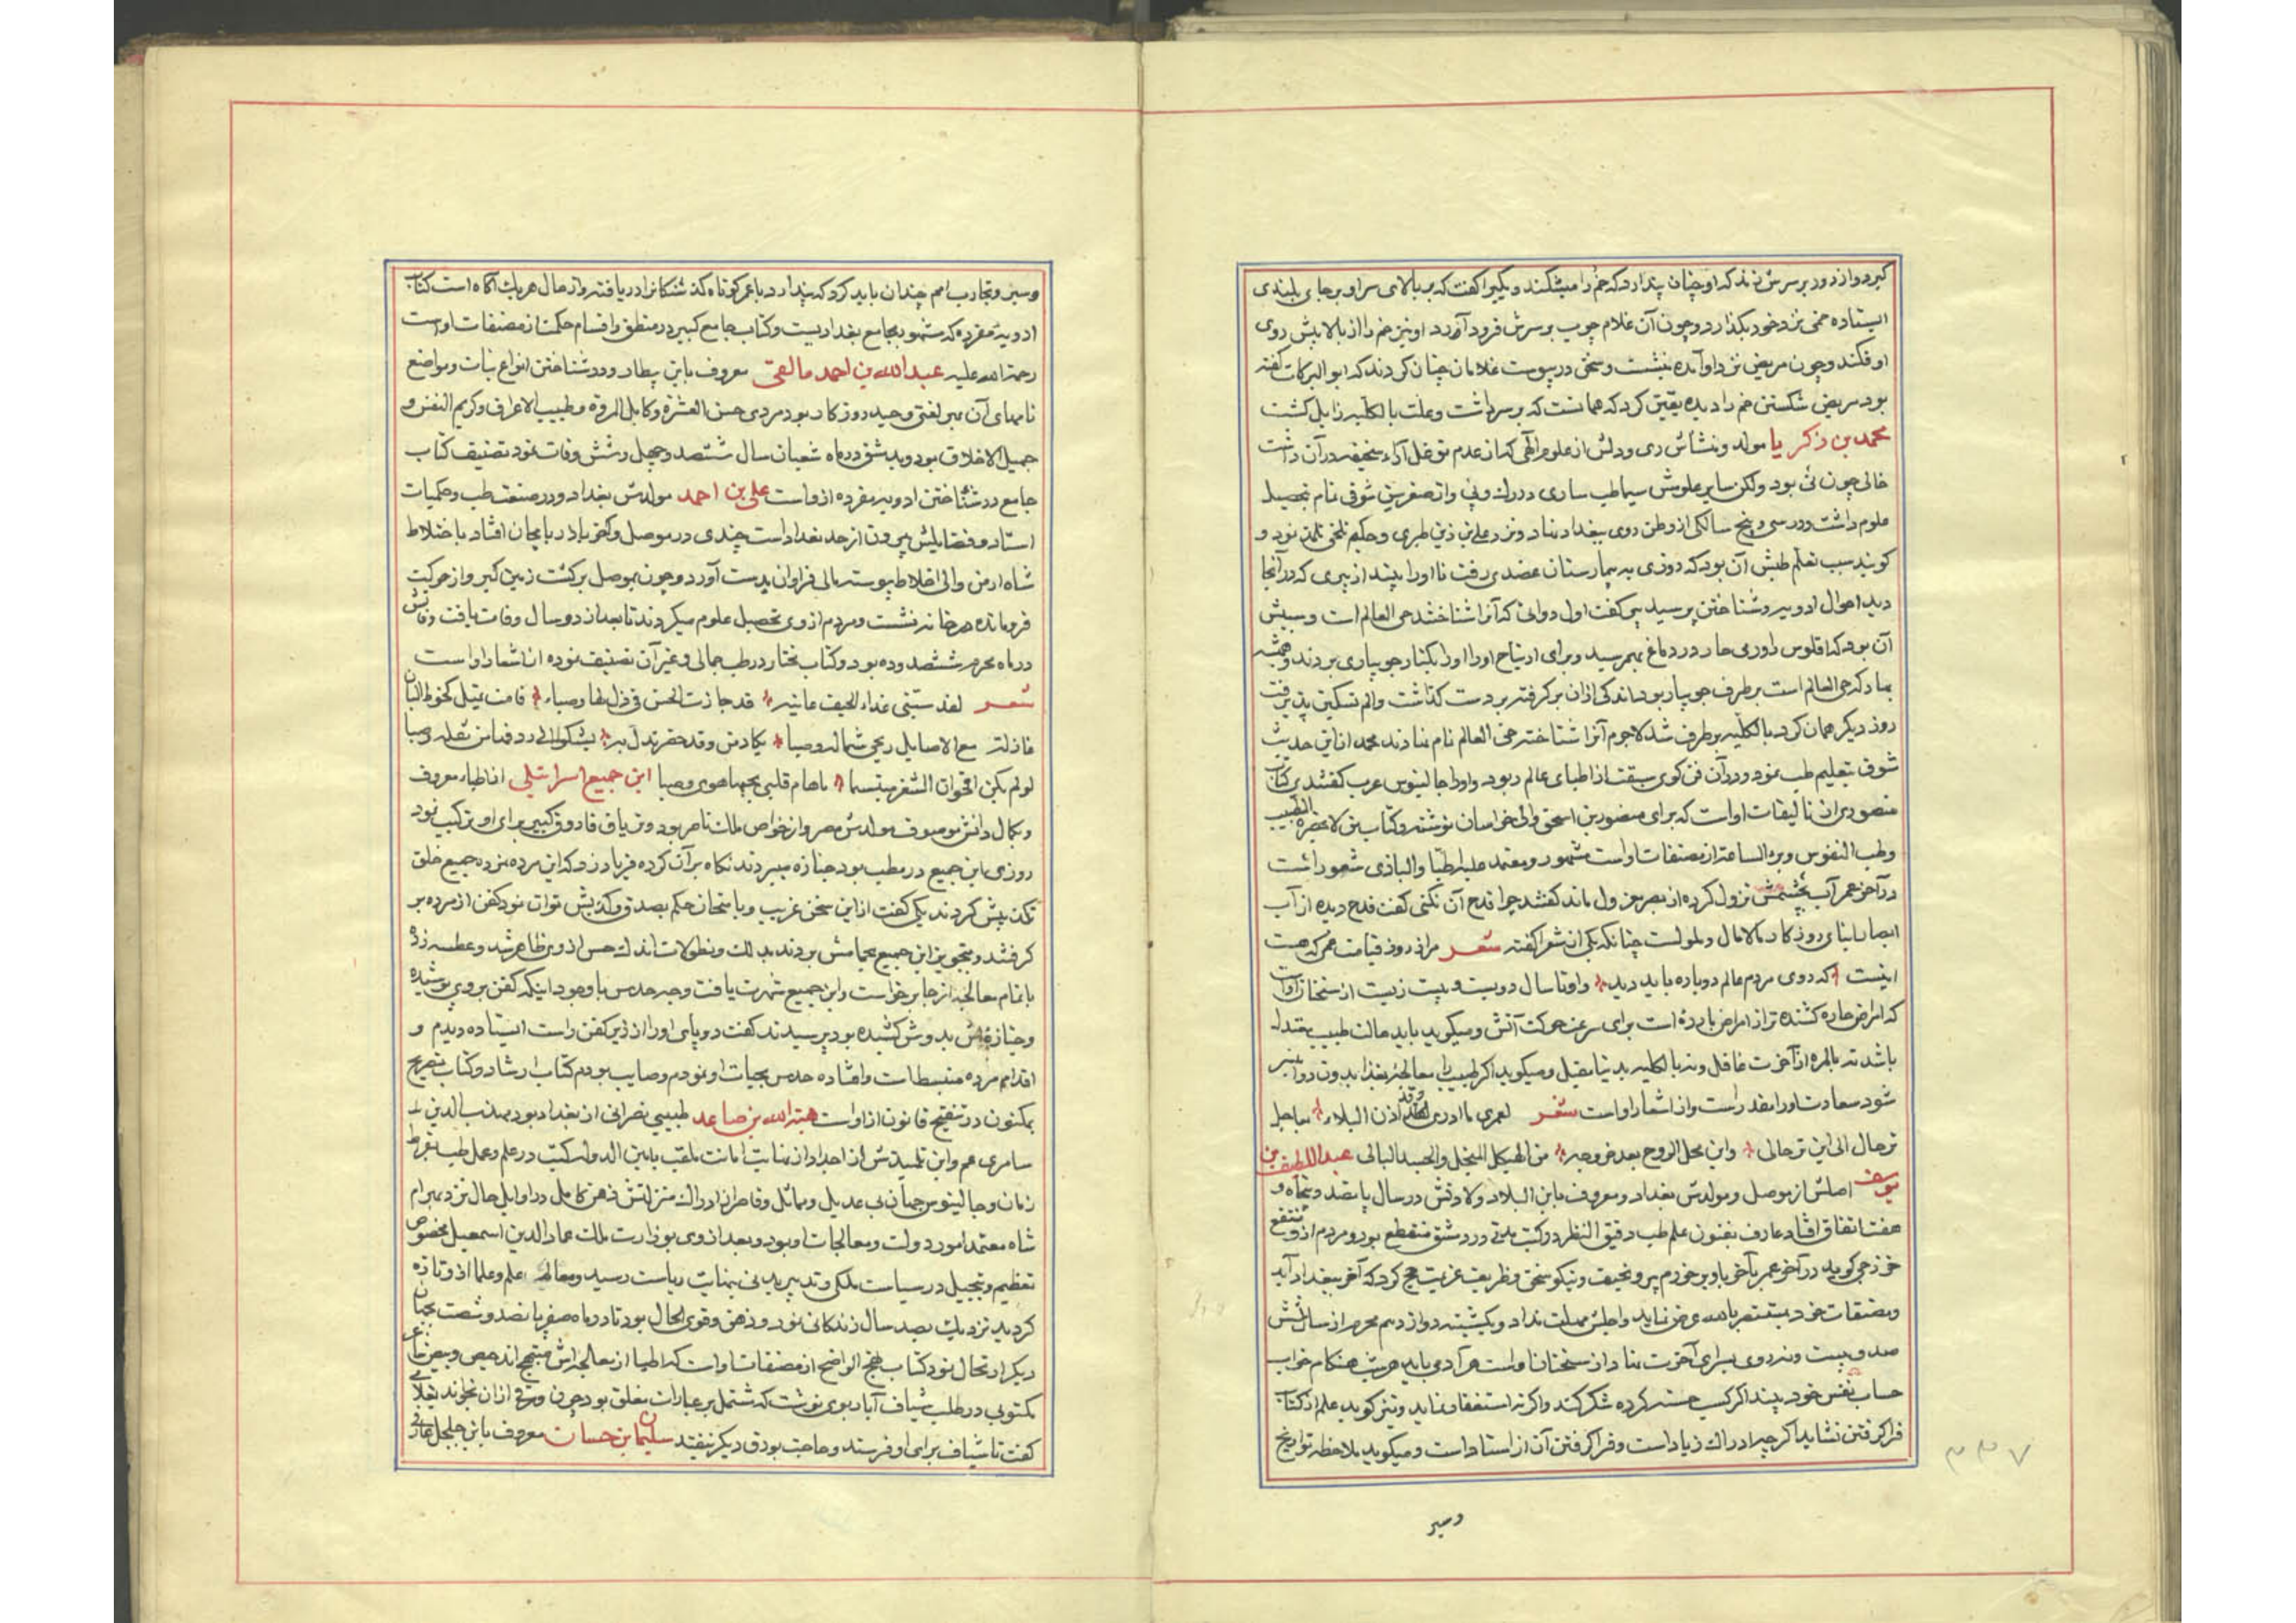 کیرد و از دور بر سرش زند که او چنان پندارد که خم را میشکند و دیگیرا گفت که بر بالای سر او بر جای بلندی
ایستاده خمی نزد خود بگذارد و چون آن غلام چوب بر سرش فرود آورد او نیز خم را از بالا پیش روی
او فکند و چون مریض نزد او آمده بنشست و سخن در پیوست غلامان چنان کردند که ابو البرکات گفته
بود مریض شکستن خم را دیده یقین کرد که همانست که بر سر داشت و علت بالکلیه زایل کشت
محمد بن زکریا مولد و منشأش ری و دلش از علوم الهی که از عدم توغل آراء سخیفه در آن داشت
خالی چون نی بود ولکن سایر علومش سیما طب ساری در رک و پی و از صغر سن شوقی تمام بتحصیل
علوم داشت و در سی و پنج سالکی از وطن روی ببغداد نهاد و نزد علی بن زین طبری و حکیم بلخی تلمذ نمود و
کویند سبب تعلم طبش آن بود که روزی به بیمارستان عضدی رفت تا او را ببیند از پیری که در آنجا
دید احوال ادویه و شناختن پرسید پیر کفت اول دوائی که آنرا شناختند حی العالم است و سببش
آن بود که افلوس را ورمی حار در دماغ بهمرسید و برای ارتیاح او را بکنار جویباری بردند و همیشه
بهار که حی العالم است بر طرف جویبار بود اندکی از آن بر گرفته بر دست گذاشت و الم تسکین پذیرفت
روز دیکر همان کرد بالکلیه بر طرف شد لاجرم آنرا شناخته حی العالم نام نهادند محمد از این حدیث
شوق بتعلیم طب نمود و در آن فن کوی سبقت از اطبای عالم ربود و او را جالینوس عرب کفتندی کتاب
منصوری از تالیفات اوست که برای منصور بن اسحق والی خراسان نوشته و کتاب من لایحضره الطبیب
وطب النفوس و برء الساعة از مصنفات اواست مشهور و معتمد علیه اطبا
در آخر عمر آب بچشمش نزول کرده از بصر معزول ماند کفتند چرا قدح آن نکنی کفت قدح دیده از آب
ابصار ابنای روزکار مالامال و ملولست چنانکه یکی از شعرا کفته شعر مرا ز روز قیامت غمی که هست
اینست که روی مردم عالم دوباره باید دید و او تا سال دویست و بیست زیست از سخنان اوست
که امراض حاره کشنده تر از امراض بارده است برای سرعت حرکت آتش و میکوید باید حالت طبیب معتدل
باشد نه بالمره از آخرت غافل و نه بالکلیه بدنیا مقبل و میکوید اکر طبیب را معالجه بغذا بدون دوا میسر
شود سعادت اورا مقدر است و از اشعار اواست شعر لعمری ما ادری لقد اذن البلاء بعاجل
ترحال الی این ترحالی و این محل الروح بعد خروجه من الهیکل المنحل والجسد البالی عبد اللطیف بن
یوسف اصلش از موصل و مولدش بغداد و معروف بابن البلاد ولادتش در سال پانصد و پنجاه و
هفت اتفاق افتاد عارف بفنون علم طب دقیق النظر در کتب مدتی در دمشق منقطع بود و مردم از او منتفع
خزرجی کوید در آخر عمر بآخر باو بر خوردم پیر و نحیف و نیکو سخن و ظریف عزیمت حج کرد که آخر ببغداد آید
و مصنفات خود بمستنصر بالله عرض نماید و اجلش مهلت نداد و یکشنبه دوازدهم محرم از سال شش
صد و بیست و نه روی بسرای آخرت نهاد از سخنان اواست هر آدمی باید هر شب هنکام خواب
حساب نفس خود ببیند اکر کسب حسنه کرده شکر کند و اکر نه استغفار نماید و نیز کوید علم از کتاب
فرا کرفتن نشاید اکر چه ادراک زیاد است و فرا کرفتن آن از استاد است و میکوید ملاحظه تواریخ
وسیر
۳۳۷
وسیر و تجارب امم چندان باید کرد که پندارد با عمر کوتاه گذشتکانرا دریافته و از حال هر یک آکاه است کتاب
ادویه مفرده که مشهور بجامع بغدادیست و کتاب جامع کبیر در منطق و اقسام حکمت از مصنفات اواست
رحمة الله علیه عبد الله بن احمد مالقی معروف بابن بیطار و در شناختن انواع نبات و مواضع
نامهای آن بهر لغتی وحید روزکار بود مردی حسن العشره و کامل المروة و طیب الاعراق و کریم النفس و
جمیل الاخلاق بود و بدمشق در ماه شعبان سال ششصد و چهل و شش وفات نمود تصنیف کتاب
جامع در شناختن ادویه مفرده از واست علی بن احمد مولدش بغداد و در صنعت طب و حکمیات
استاد و فضایلش بیرون از حد تعداد است چندی در موصل و آخر باذربایجان افتاد باخلاط
شاه ارمن والی اخلاط پیوسته مالی فراوان بدست آورد و چون بموصل برکشت زمین کیر و از حرکت
فرومانده در خانه نشست و مردم از وی تحصیل علوم میکردند تا بعد از دو سال وفات یافت وفاتش
در ماه محرم ششصد و ده بود و کتاب مختار در طب جمالی و غیر آن تصنیف نموده از اشعار اواست
شعر لقد سبتنی غداة الخیف غانیه قد حازت الحسن فی دل لها و صباء قامت تمیل کخوط البان
غازلته مع الاصایل ریحی شمال و صبا یکاد من وقد خصر تدل به یشکوا الی ردفها من ثقله وصبا
لو لم یکن اقحوان الثغر مبتسما ما هام قلبی بحبها هوی و صبا ابن جمیع اسرائیلی از اطباء معروف
و بکمال دانش موصوف مولدش مصر و از خواص ملک ناصر بود و تریاق فاروق کبیر برای او ترکیب نمود
روزی ابن جمیع در مطب بود جنازه میبردند نکاه بر آن کرده فریاد زد که این مرده نمرده جمیع خلق
یکی کفت از این سخن غریب و بامتحان حکم بصدق و کذبش توان نمود کفن از مرده بر
کرفتند و بتجویز ابن جمیع بحمامش بردند بدلک و نطولات اندک حس از وی ظاهر شد و عطسه زد
باتمام معالجه از جا برخواست و ابن جمیع شهرت یافت وجه حدس با وجود اینکه کفن بر وی پوشیده
و جنازه اش بدوش کشیده بود پرسیدند کفت دو پای او را از زیر کفن راست ایستاده دیدم و
اقدام مرده منبسط است و افتاده حدس بحیات او نمودم و صایب بودم کتاب ارشاد و کتاب تصریح
بمکنون در تنقیح قانون از اواست هبة الله بن صاعد طبیبی نصرانی از بغداد بود مهذب الدین
سامری عم و ابن تلمیذش از اجداد از نهایت امانت ملقب بامین الدوله در علم و عمل طب بقراط
زمان و جالینوس جهان بی عدیل و مماثل و قاصر از ادراک منزلتش ذهن کامل در اوایل حال نزد بهرام
شاه معتمد امور دولت و معالجات او بود و بعد از وی بوزارت ملک عماد الدین اسمعیل مخصوص
تعظیم و تبجیل در سیاست ملکی و تدبیر بدنی بنهایت ریاست رسید و معالم علم و علما از و تازه
کردید نزدیک بصد سال زندکانی نمود و ذهن و قوی بحال بود تا در ماه صفر پانصد و شصت بجهان
دیکر ارتحال نمود کتاب نهج الواضح از مصنفات اواست که اطبا از معالجه اش
مکتوبی در طلب شیاف آبار بوی نوشت که مشتمل بر عبارات مغلق بود چون ورقی از آن بخواند بغلامی
کفت تا شیاف برای او فرستد و حاجت بورق دیکر نیفتد سلیمان بن حسان معروف بابن جلجل عارف